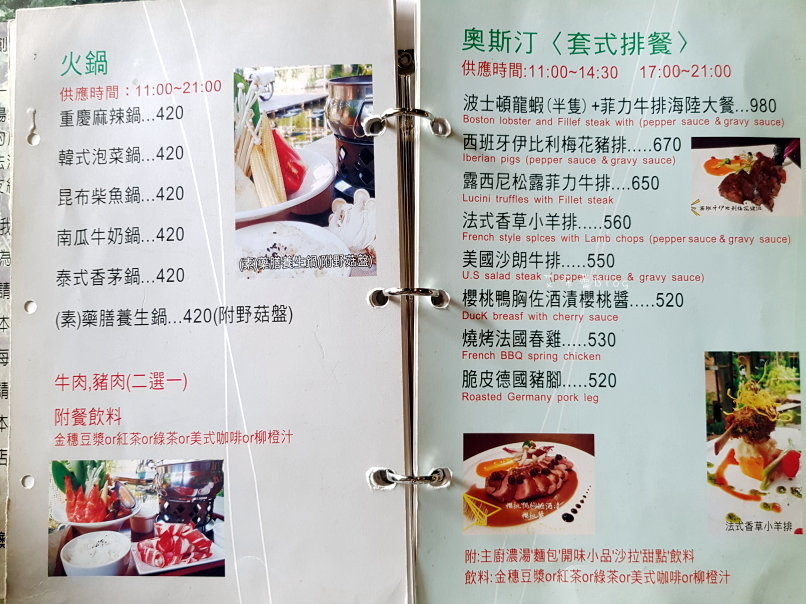 火鍋
供應時間：11:00~21:00
重慶麻辣鍋...420
韓式泡菜鍋...420
昆布柴魚鍋...420
南瓜牛奶鍋...420
泰式香茅鍋...420
(素)藥膳養生鍋...420(附野菇盤)
(素)藥膳養生鍋(附野菇盤)
牛肉,豬肉(二選一)
附餐飲料
金穗豆漿or紅茶or綠茶or美式咖啡or柳橙汁
奧斯汀〈套式排餐〉
供應時間:11:00~14:30 17:00~21:00
波士頓龍蝦(半隻)+菲力牛排海陸大餐...980
Boston lobster and Fillef steak with (pepper sauce & gravy sauce)
西班牙伊比利梅花豬排.....670
Iberian pigs (pepper sauce & gravy sauce)
露西尼松露菲力牛排....650
Lucini truffles with Fillet steak
法式香草小羊排.....560
French style spices with Lamb chops (pepper sauce & gravy sauce)
美國沙朗牛排.....550
U.S salad steak (pepper sauce & gravy sauce)
櫻桃鴨胸佐酒漬櫻桃醬.....520
DucK breasf with cherry sauce
燒烤法國春雞.....530
French BBQ spring chicken
脆皮德國豬腳.....520
Roasted Germany pork leg
法式香草小羊排
附:主廚濃湯'麵包'開味小品'沙拉'甜點'飲料
飲料:金穗豆漿or紅茶or綠茶or美式咖啡or柳橙汁